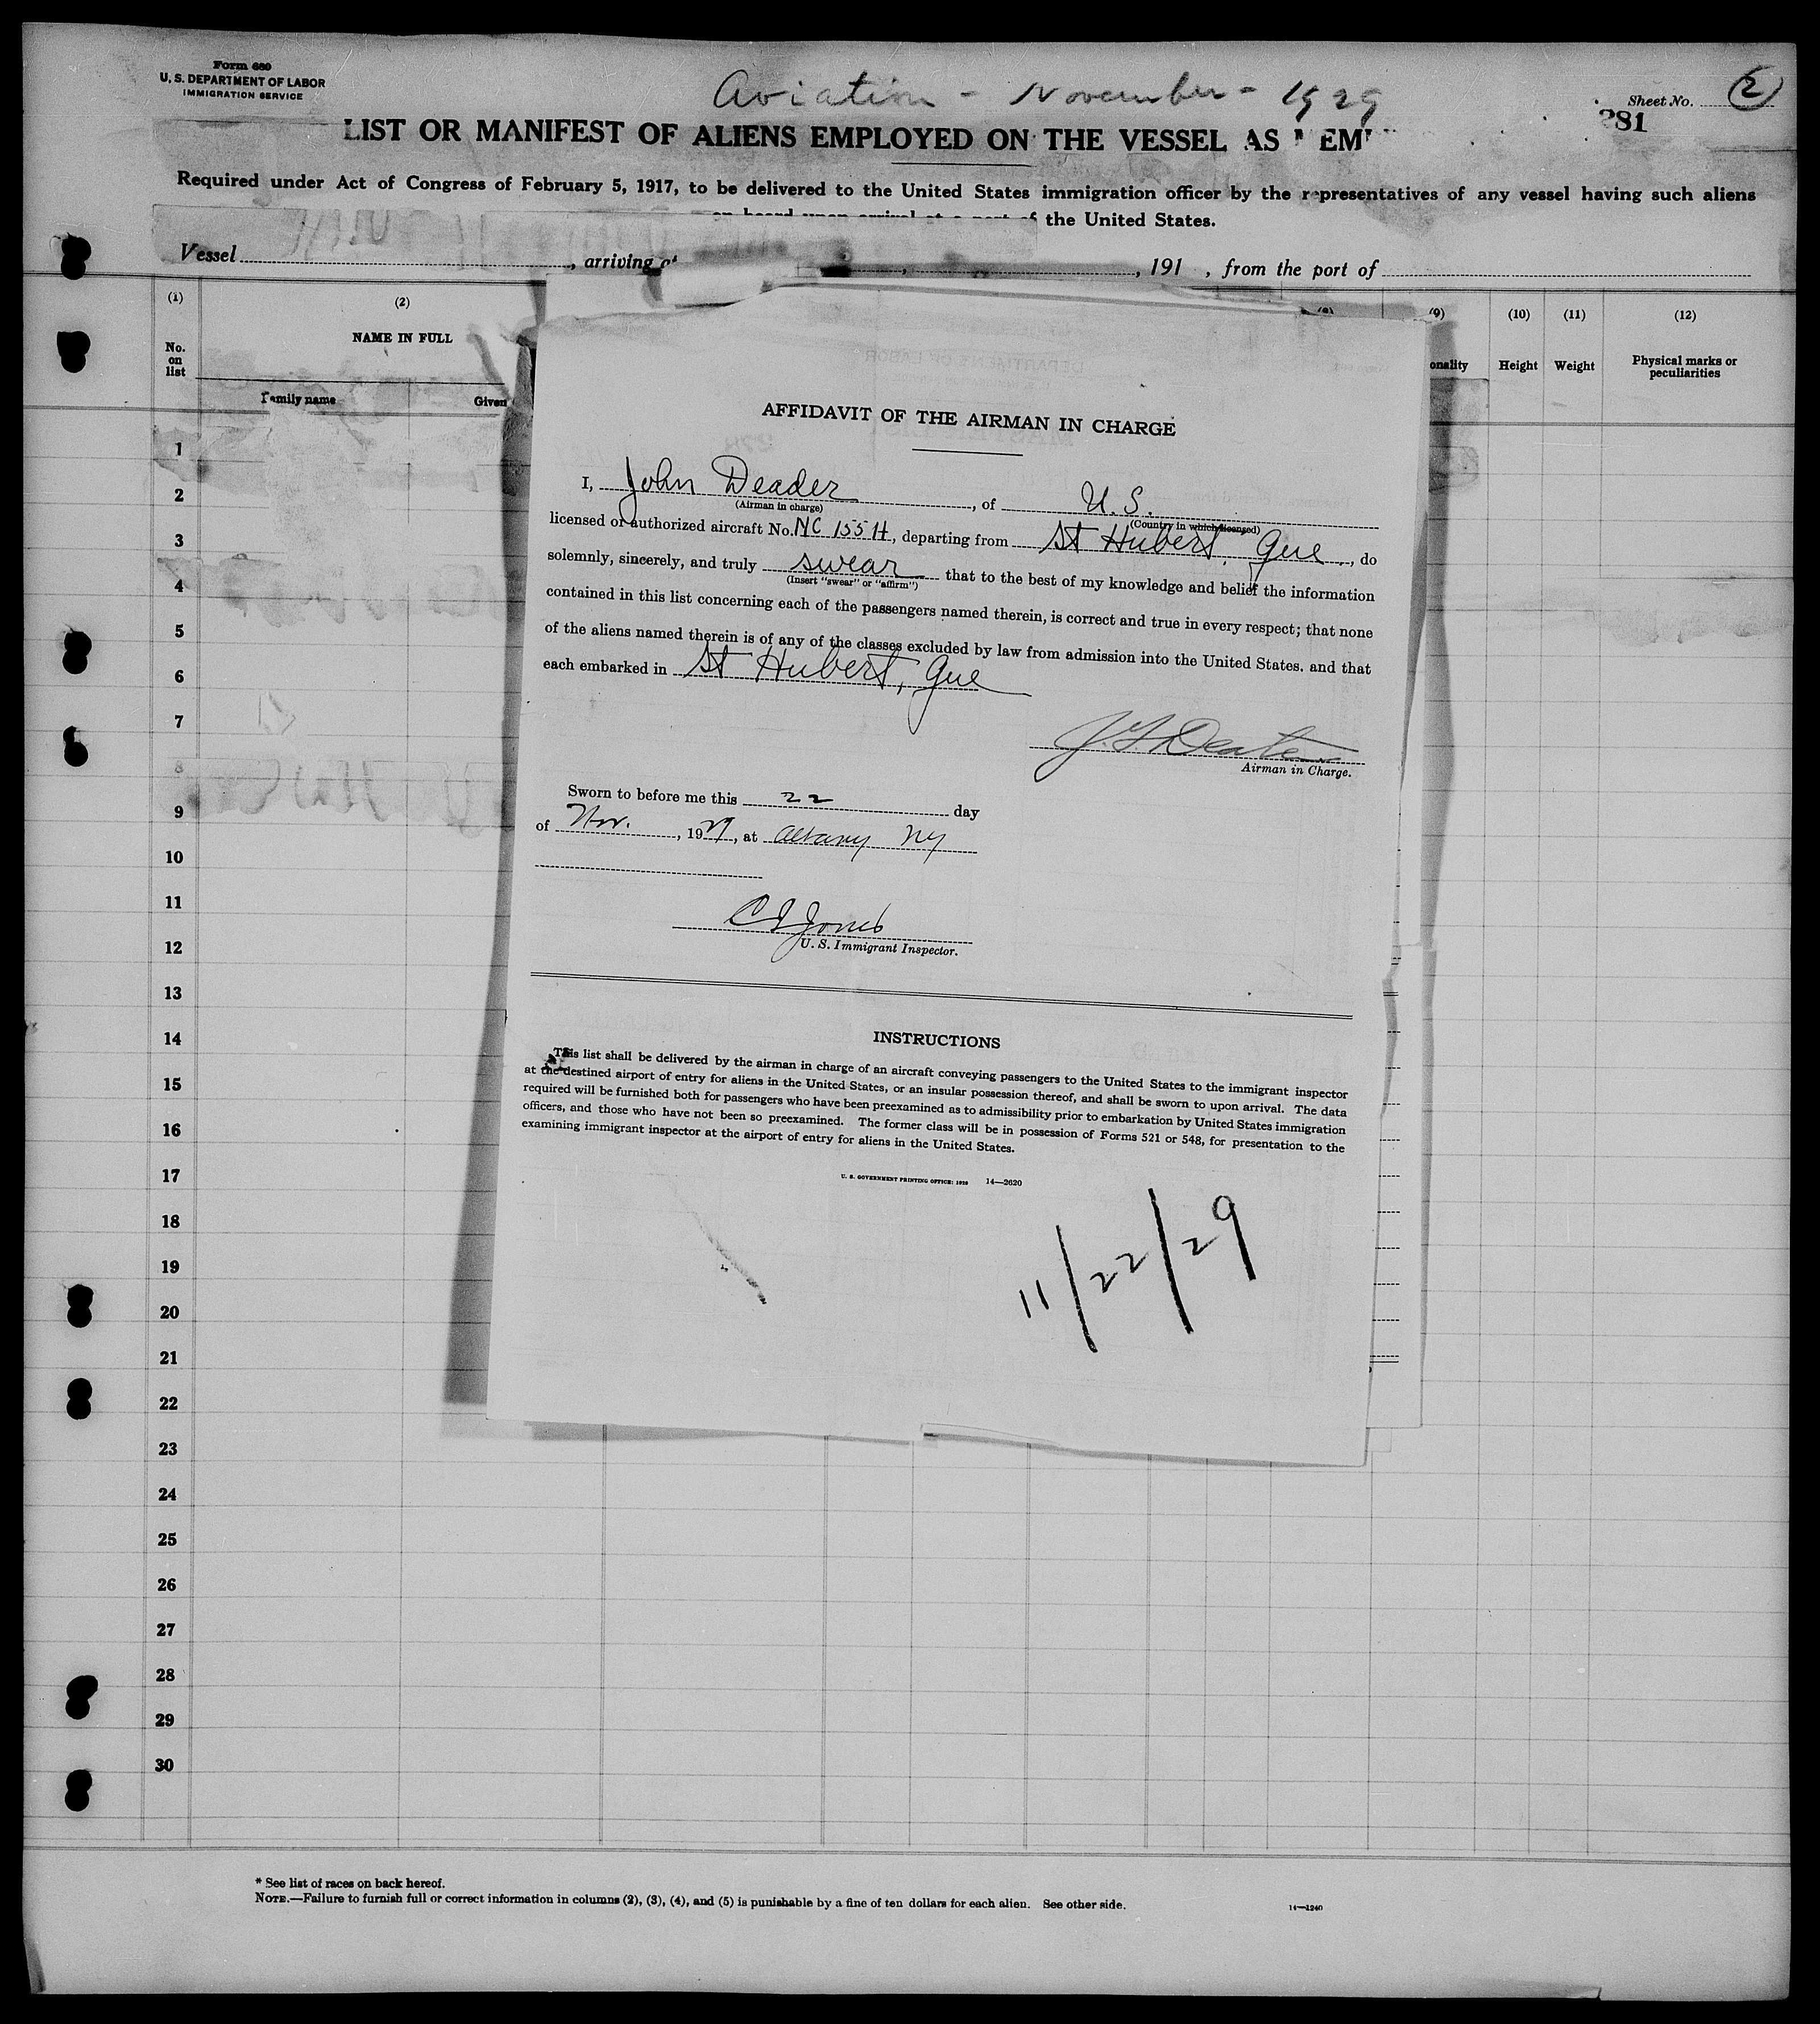 Form 689
U. S. DEPARTMENT OF LABOR
IMMIGRATION SERVICE
Aviation - November - 1929
Sheet No. 2
281
LIST OR MANIFEST OF ALIENS EMPLOYED ON THE VESSEL AS EM
Required under Act of Congress of February 5, 1917, to be delivered to the United States immigration officer by the representatives of any vessel having such aliens
on board upon arrival at a port of the United States.
Vessel , arriving at , , 191 , from the port of
(1) (2) (8) (9) (10) (11) (12)
No. on list
NAME IN FULL
Family name Given
onality Height Weight Physical marks or peculiarities
AFFIDAVIT OF THE AIRMAN IN CHARGE
I, John Deader , of U. S.
(Airman in charge) (Country in which licensed)
licensed or authorized aircraft No. NC 155H, departing from St Hubert, Que , do
solemnly, sincerely, and truly swear that to the best of my knowledge and belief the information
(Insert "swear" or "affirm")
contained in this list concerning each of the passengers named therein, is correct and true in every respect; that none
of the aliens named therein is of any of the classes excluded by law from admission into the United States, and that
each embarked in St Hubert, Que
Airman in Charge.
Sworn to before me this 22 day
of Nov. , 1929, at Albany NY
C I Jones
U. S. Immigrant Inspector.
INSTRUCTIONS
This list shall be delivered by the airman in charge of an aircraft conveying passengers to the United States to the immigrant inspector
at the destined airport of entry for aliens in the United States, or an insular possession thereof, and shall be sworn to upon arrival. The data
required will be furnished both for passengers who have been preexamined as to admissibility prior to embarkation by United States immigration
officers, and those who have not been so preexamined. The former class will be in possession of Forms 521 or 548, for presentation to the
examining immigrant inspector at the airport of entry for aliens in the United States.
U. S. GOVERNMENT PRINTING OFFICE: 1929 14—2620
11/22/29
1
2
3
4
5
6
7
8
9
10
11
12
13
14
15
16
17
18
19
20
21
22
23
24
25
26
27
28
29
30
* See list of races on back hereof.
NOTE.—Failure to furnish full or correct information in columns (2), (3), (4), and (5) is punishable by a fine of ten dollars for each alien. See other side.
14—1240